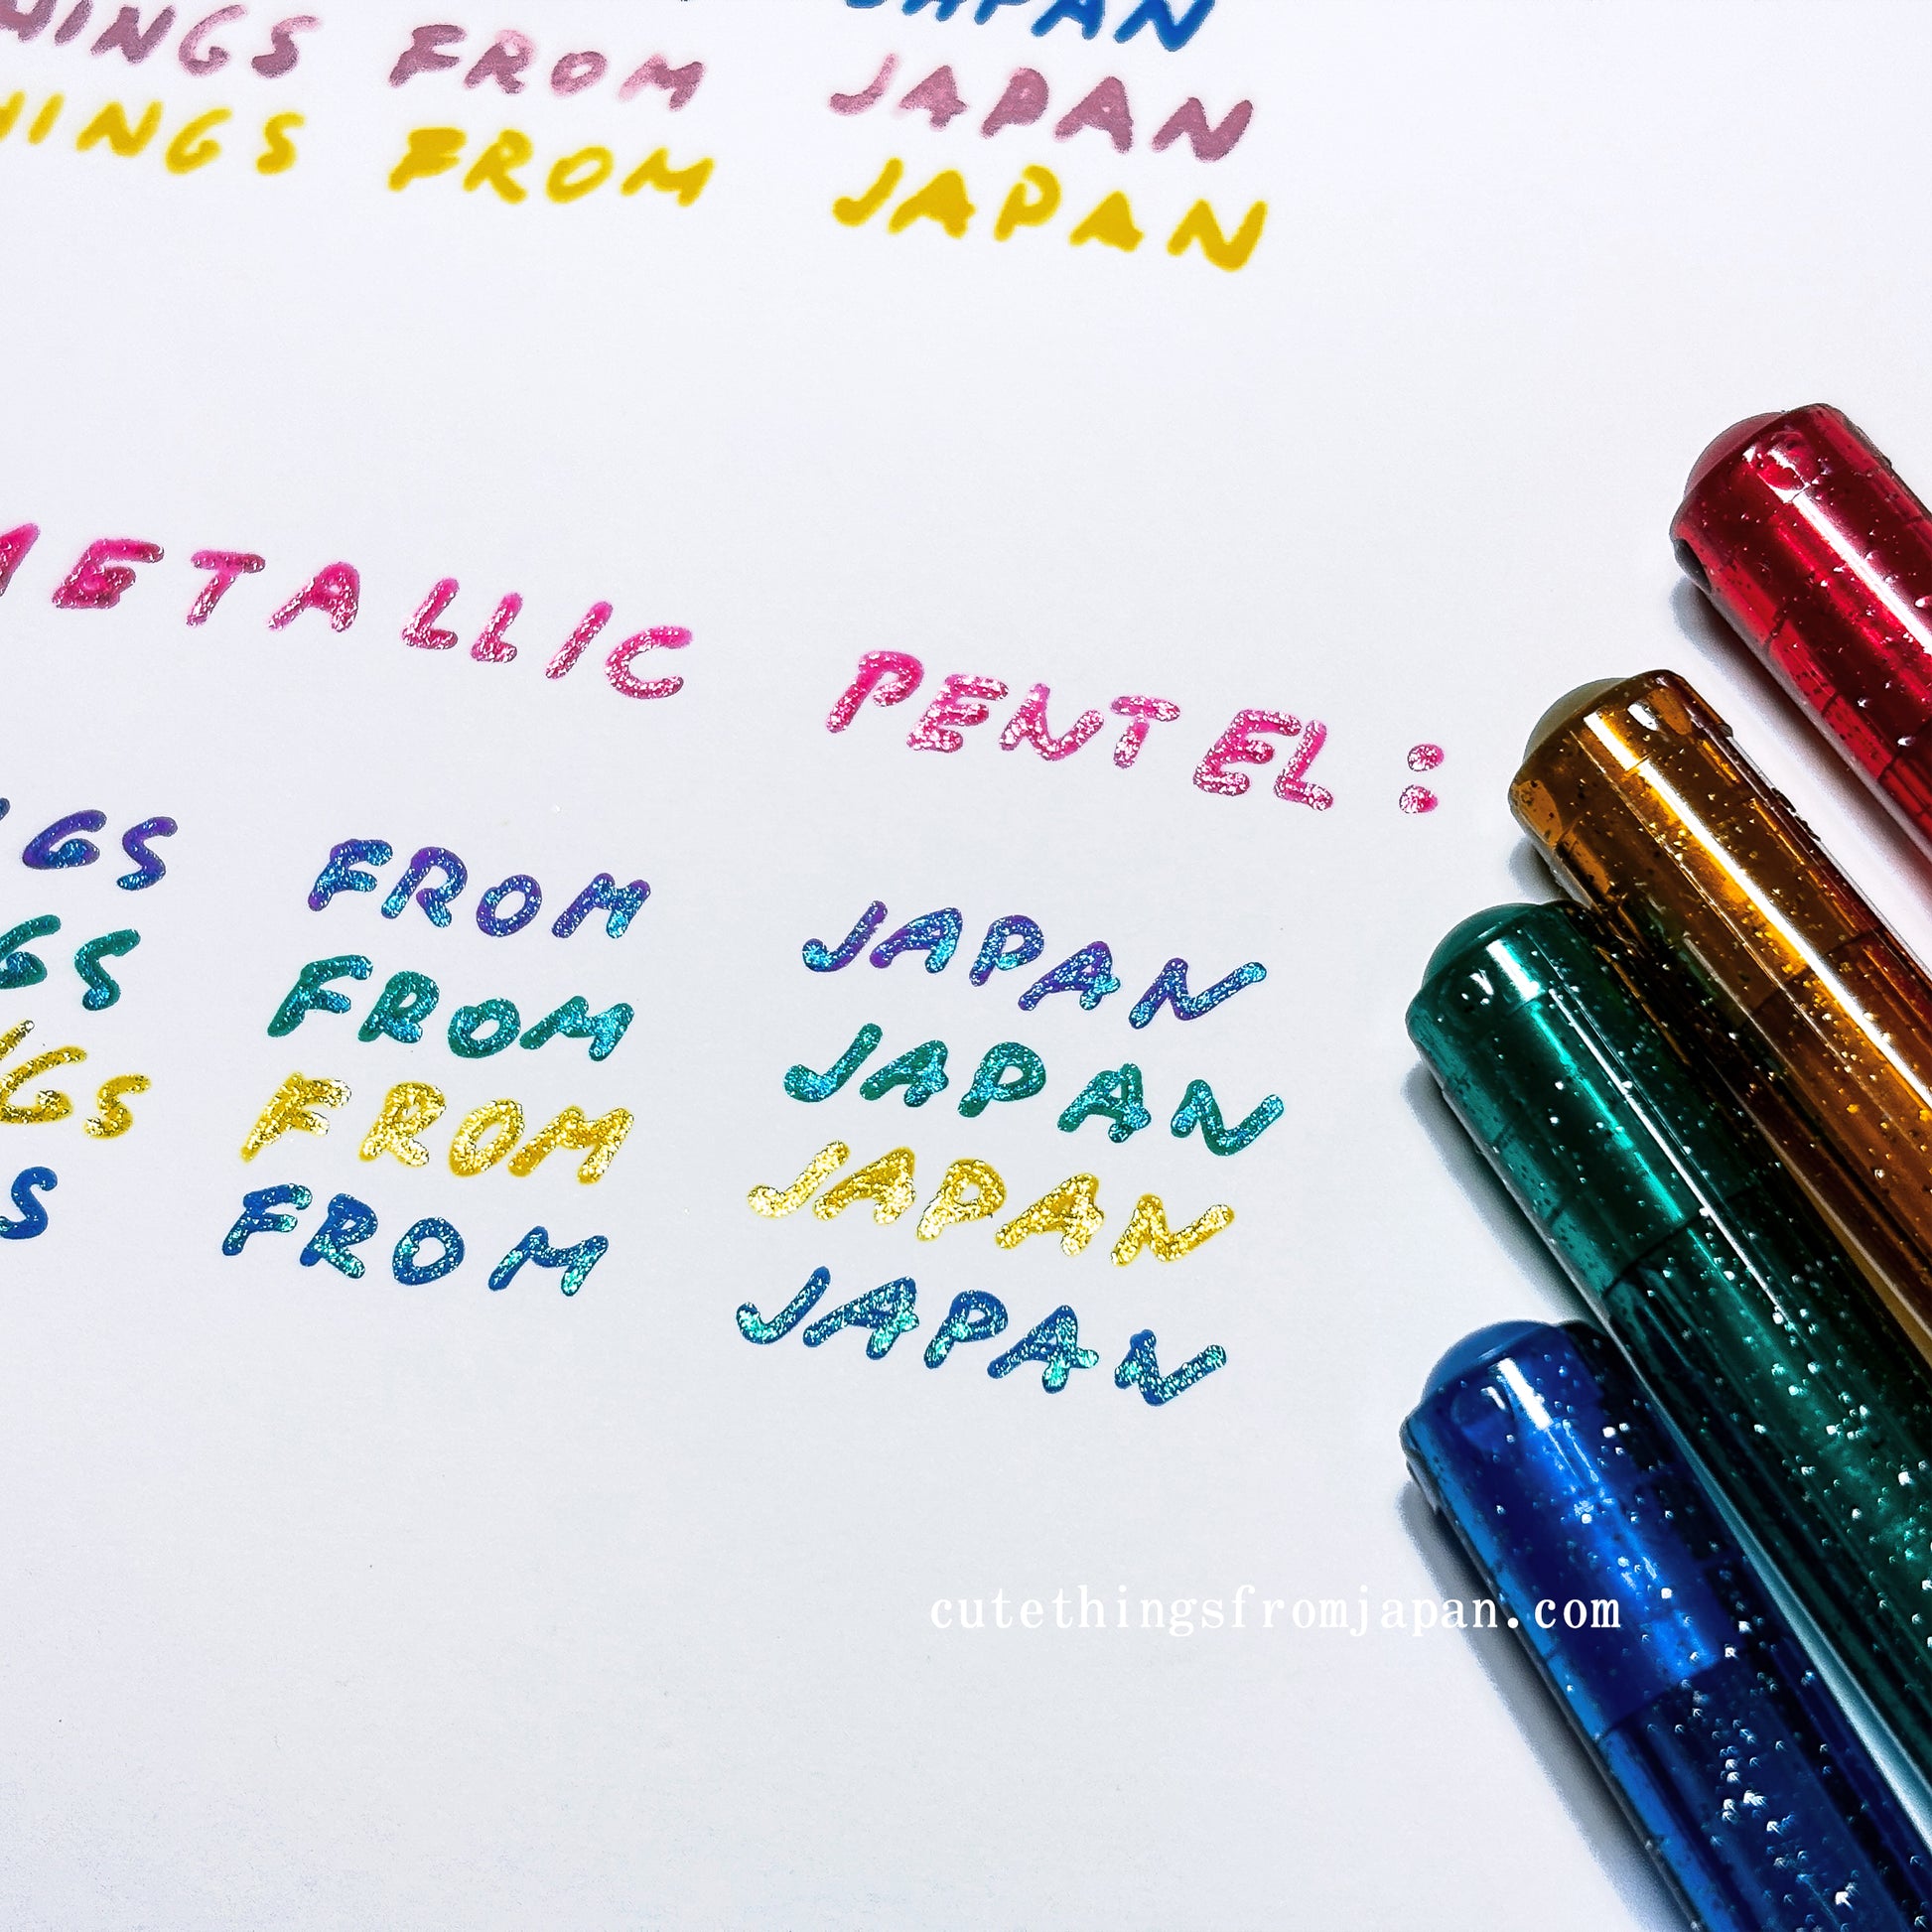 JAPAN
HINGS FROM JAPAN
HINGS FROM JAPAN
METALLIC PENTEL:
NGS FROM JAPAN
GS FROM JAPAN
NGS FROM JAPAN
S FROM JAPAN
cutethingsfromjapan.com